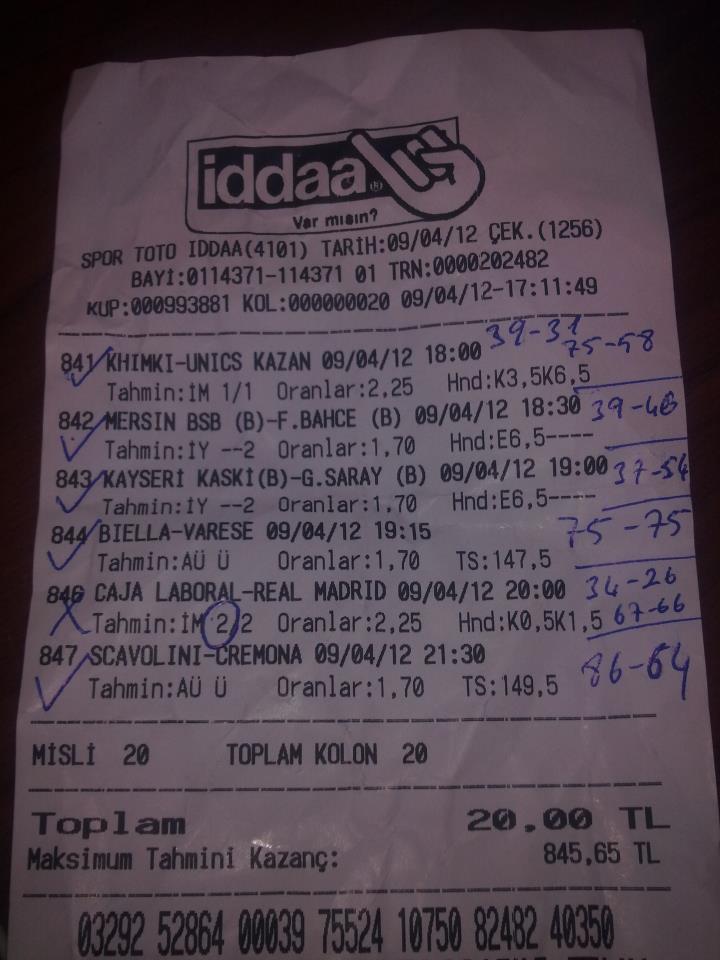 iddaa
Var mısın?
SPOR TOTO IDDAA(4101) TARİH:09/04/12 ÇEK.(1256)
BAYİ:0114371-114371 01 TRN:0000202482
KUP:000993881 KOL:000000020 09/04/12-17:11:49
39-31
841 KHIMKI-UNICS KAZAN 09/04/12 18:00 75-58
Tahmin:İM 1/1 Oranlar:2,25 Hnd:K3,5K6,5
842 MERSIN BSB (B)-F.BAHCE (B) 09/04/12 18:30 39-46
Tahmin:İY --2 Oranlar:1,70 Hnd:E6,5----
843 KAYSERİ KASKİ(B)-G.SARAY (B) 09/04/12 19:00 37-54
Tahmin:İY --2 Oranlar:1,70 Hnd:E6,5----
844 BIELLA-VARESE 09/04/12 19:15 75-75
Tahmin:AÜ Ü Oranlar:1,70 TS:147,5
846 CAJA LABORAL-REAL MADRID 09/04/12 20:00 34-26
Tahmin:İM 2/2 Oranlar:2,25 Hnd:K0,5K1,5 67-66
847 SCAVOLINI-CREMONA 09/04/12 21:30
Tahmin:AÜ Ü Oranlar:1,70 TS:149,5 86-64
MİSLİ 20 TOPLAM KOLON 20
Toplam 20.00 TL
Maksimum Tahmini Kazanç: 845,65 TL
03292 52864 00039 75524 10750 82482 40350